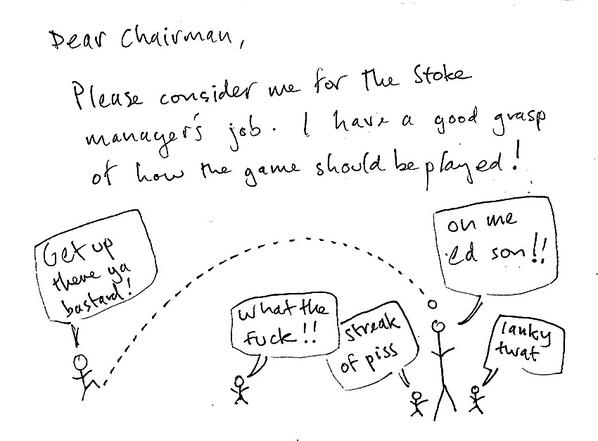 Dear Chairman,
Please consider me for the Stoke
manager's job. I have a good grasp
of how the game should be played!
Get up
there ya
bastard!
what the
fuck!!
streak
of piss
on me
'ed son!!
lanky
twat